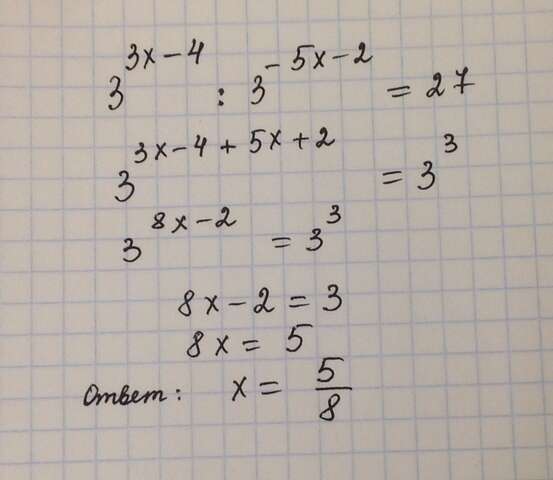 3^{3x-4} : 3^{-5x-2} = 27
3^{3x-4+5x+2} = 3^3
3^{8x-2} = 3^3
8x-2 = 3
8x = 5
Ответ: x = 5/8